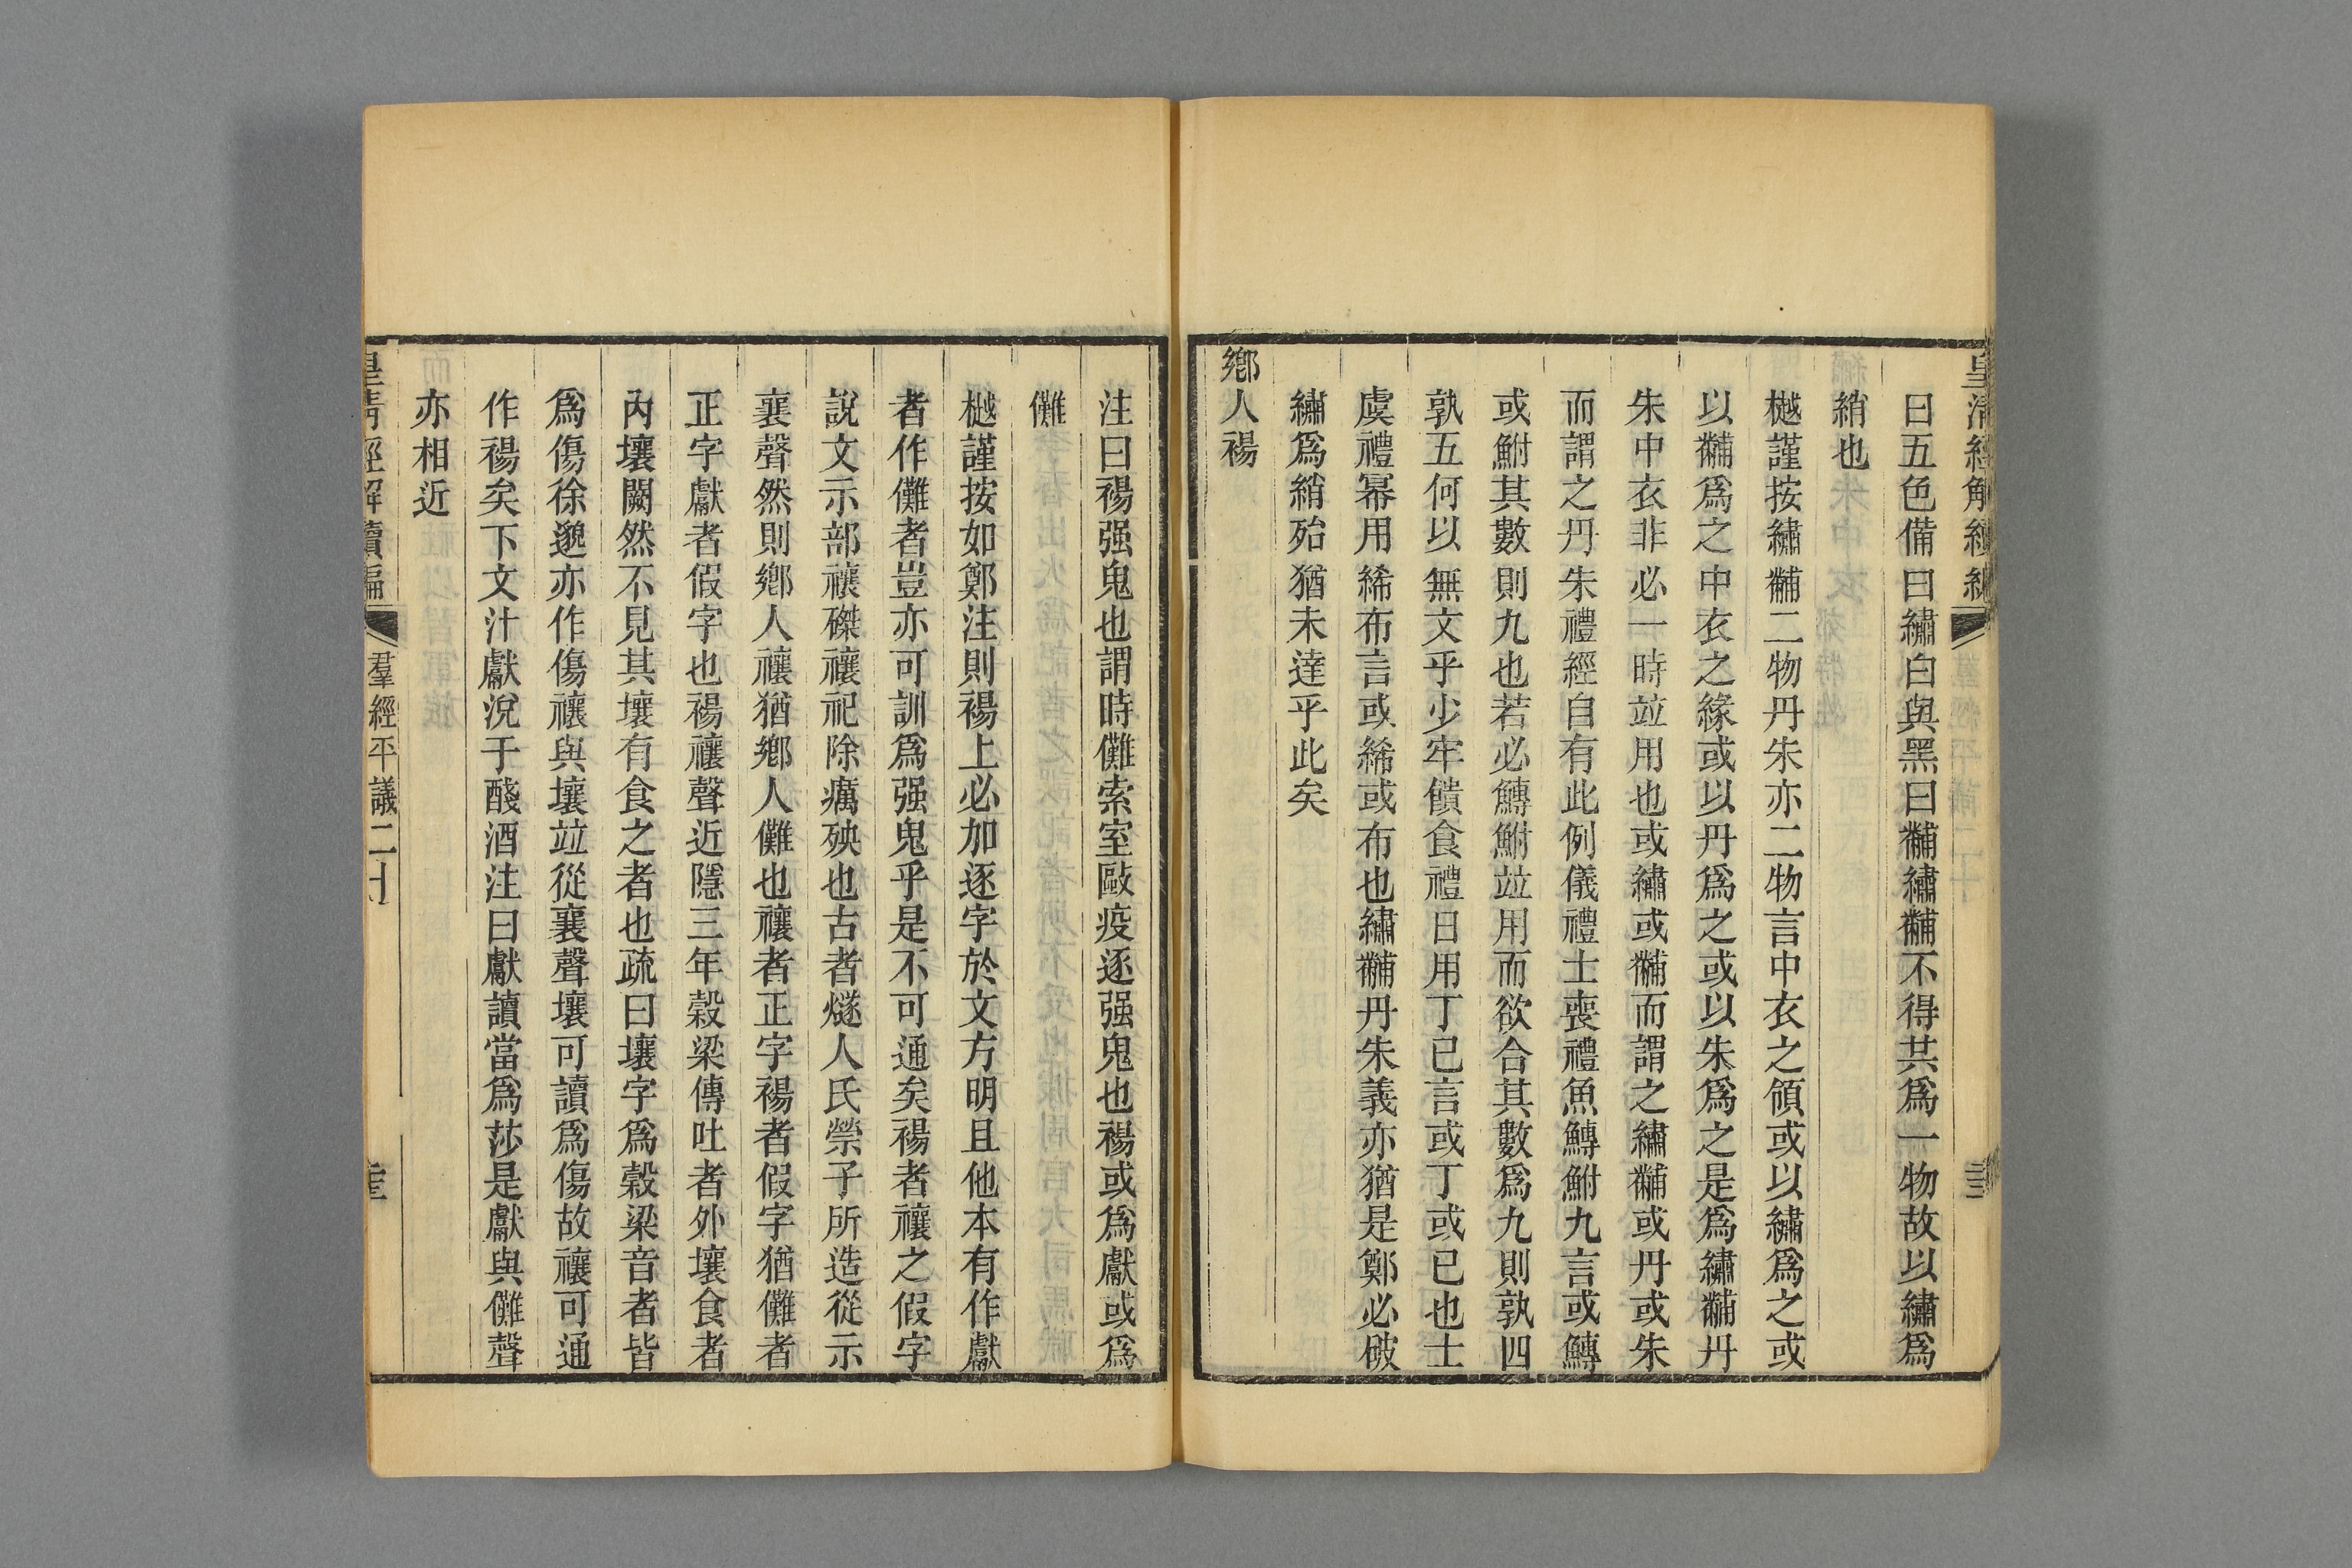 皇清經解續編
曰五色備曰繡白與黑曰黼繡黼不得共爲一物故以繡爲
綃也
樾謹按繡黼二物丹朱亦二物言中衣之領或以繡爲之或
以黼爲之中衣之緣或以丹爲之或以朱爲之是爲繡黼丹
朱中衣非必一時竝用也或繡或黼而謂之繡黼或丹或朱
而謂之丹朱禮經自有此例儀禮士喪禮魚鱄鮒九言或鱄
或鮒其數則九也若必鱄鮒竝用而欲合其數爲九則孰四
孰五何以無文乎少牢饋食禮日用丁己言或丁或己也士
虞禮冪用絺布言或絺或布也繡黼丹朱義亦猶是鄭必破
繡爲綃殆猶未達乎此矣
鄉人禓
注曰禓强鬼也謂時儺索室敺疫逐强鬼也禓或爲獻或爲
儺
樾謹按如鄭注則禓上必加逐字於文方明且他本有作獻
者作儺者豈亦可訓爲强鬼乎是不可通矣禓者禳之假字
說文示部禳磔禳祀除癘殃也古者燧人氏禜子所造從示
襄聲然則鄉人禳猶鄉人儺也禳者正字禓者假字猶儺者
正字獻者假字也禓禳聲近隱三年穀梁傳吐者外壤食者
內壤闕然不見其壤有食之者也疏曰壤字爲穀梁音者皆
爲傷徐邈亦作傷禳與壤竝從襄聲壤可讀爲傷故禳可通
作禓矣下文汁獻涗于醆酒注曰獻讀當爲莎是獻與儺聲
亦相近
皇清經解續編
羣經平議二十